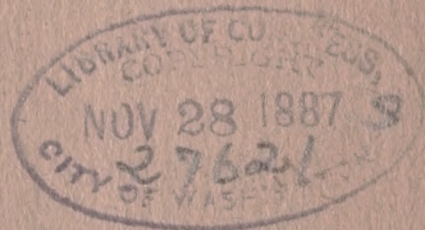 LIBRARY OF CONGRESS,
COPYRIGHT
NOV 28 1887
27621
CITY OF WASHINGTON